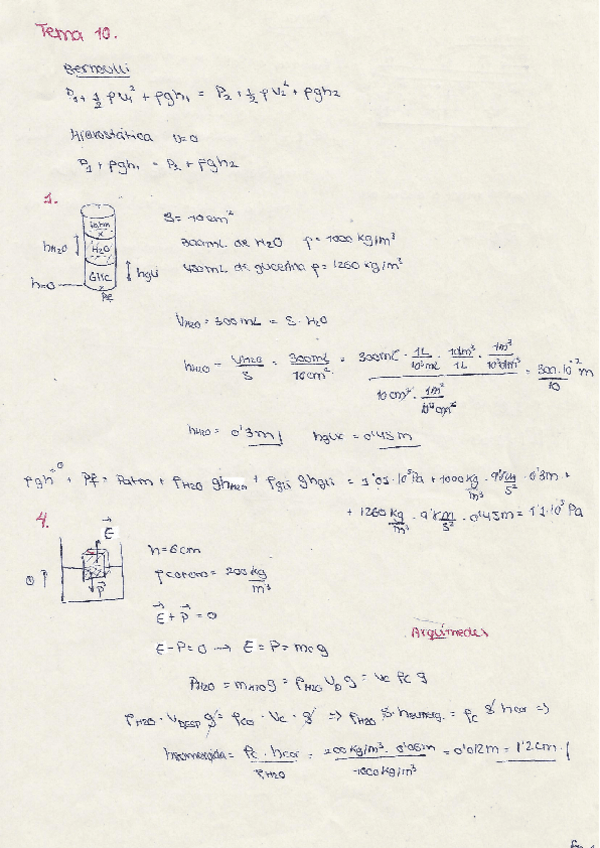 Tema 10.
Bernoulli
P₁ + ½ ρv₁² + ρgh₁ = P₂ + ½ ρv₂² + ρgh₂
Hidrostática v=0
P₁ + ρgh₁ = P₂ + ρgh₂
1.
S = 10 cm²
Patm
300 mL de H₂O ρ = 1000 kg/m³
hH₂O
H₂O
400mL de glicerina ρ = 1260 kg/m³
Glic
hgli
h=0
Pf
VH₂O = 300 mL = S · H₂O
hH₂O = VH₂O / S = 300mL / 10cm² = 300mL · 1L/10³mL · 1dm³/1L · 1m³/10³dm³ / 10cm² · 1m²/10⁴cm² = 300·10⁻² m / 10
hH₂O = 0'3m hglix = 0'45m
ρgh⁰ + Pf = Patm + ρH₂O ghH₂O + ρgli ghgli = 1'01·10⁵Pa + 1000 kg/m³ · 9'8 m/s² · 0'3m +
+ 1260 kg/m³ · 9'8 m/s² · 0'45m = 1'1·10⁵ Pa
4.
E
h = 6cm
ρcorcho = 200 kg/m³
P
E + P = 0
Arquímedes
E - P = 0 → E = P = mcg
PH₂O = mH₂O g = ρH₂O VD g = Vc ρc g
ρH₂O · VDESP g = ρco · Vc · g ⇒ ρH₂O S·hsumerg. = ρc S hcor ⇒
hsomergida = ρc · hcor / ρH₂O = 200 kg/m³ · 0'06m / 1000 kg/m³ = 0'012m = 1'2cm